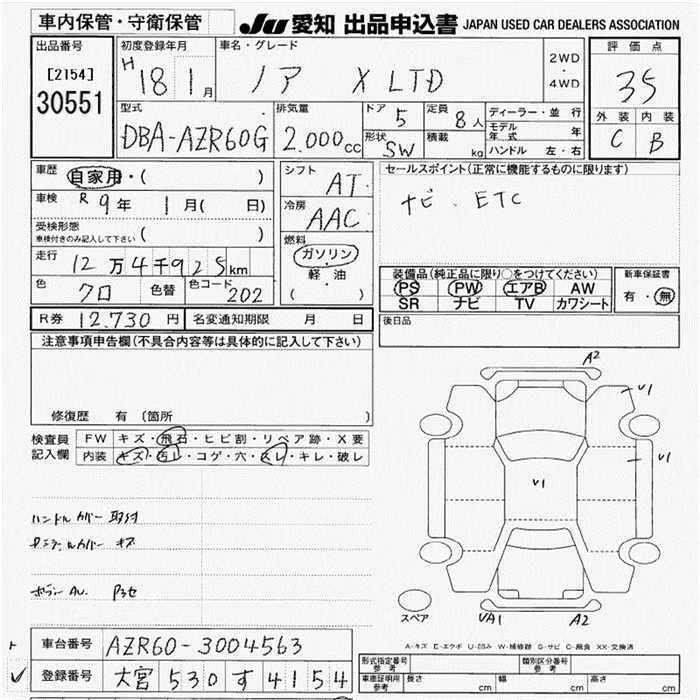 車内保管・守衛保管 JU 愛知 出品申込書 JAPAN USED CAR DEALERS ASSOCIATION
出品番号 [2154] 30551
初度登録年月 H 18 1月
車名・グレード ノア X LTD
2WD・4WD
評価点 35
外装 C 内装 B
型式 DBA-AZR60G
排気量 2.000cc
ドア 5 定員 8人
形状 SW 積載 kg
ディーラー・並行
モデル年式 年
ハンドル 左・右
車歴 自家用・( )
車検 R 9年 1月( 日)
受検形態 車検付きのみ記入して下さい ( )
走行 12万4千925km
色 クロ 色替 色コード 202
シフト AT
冷房 AAC
燃料 ガソリン・軽油 ( )
セールスポイント(正常に機能するものに限ります)
ナビ、ETC
装備品(純正品に限り○をつけてください)
PS PW エアB AW
SR ナビ TV カワシート
新車保証書 有・無
R券 12.730円 名変通知期限 月 日
後日品
注意事項申告欄(不具合内容等は具体的に記入して下さい)
修復歴 有(箇所 )
検査員記入欄
FW キズ・飛石・ヒビ割・リペア跡・X要
内装 キズ・汚レ・コゲ・穴・スレ・キレ・破レ
ハンドルカバー 取付
キズ
A2
U1
U1
U1
UA1 A2
スペア
A-キズ E-エクボ U-凹み W-補修跡 S-サビ C-腐食 XX-交換済
ト 車台番号 AZR60-3004563
✓ 登録番号 大宮 530 す 4154
形式指定番号 参考 類別区分番号 参考
車庫証明用 参考 長さ cm 幅 cm 高さ cm